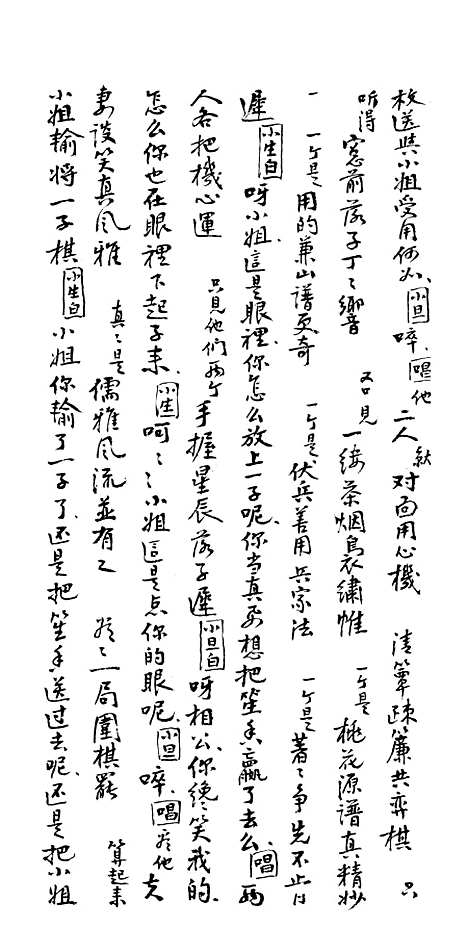 枚送與小姐受用何如、小旦啐、唱他二人欤对面用心機　清簟疎簾共弈棋　只
听得窓前落子丁丶響音　又只見一缕茶烟烏衣繡帷　一个是桃花源譜真精妙
一　一个是用的兼山譜更奇　一个是伏兵善用兵家法　一个是著丶争先不止
遲小生白呀小姐、這是眼裡、你怎么放上一子呢、你当真要想把笙香贏了去么、唱两
人各把機心運　只見他們两个手握星辰落子遲小旦白呀相公、你縂笑我的、
怎么你也在眼裡下起子来、小生呵丶丶小姐這是点你的眼呢、小旦啐、唱他夫
妻談笑真风雅　真丶是儒雅风流並有之　一局圍棋罷　算起来
小姐輸将一子棋小生白小姐你輸了一子了、还是把笙香送过去呢、还是把小姐